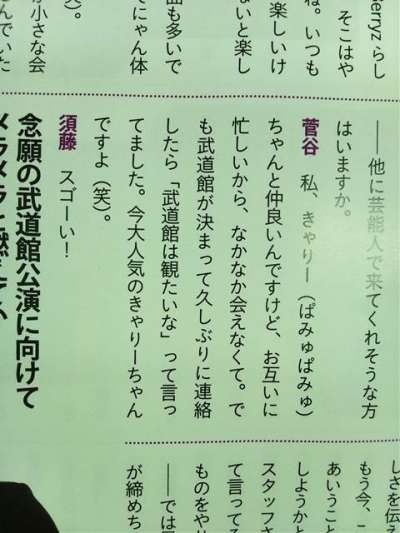 erryz らし
そこはや
ね。いつも
楽しいけ
ないと楽し
曲も多いで
そにゃん体
笑）。
が小さな会
んでいた
――他に芸能人で来てくれそうな方
はいますか。
菅谷　私、きゃりー（ぱみゅぱみゅ）
ちゃんと仲良いんですけど、お互いに
忙しいから、なかなか会えなくて。で
も武道館が決まって久しぶりに連絡
したら「武道館は観たいな」って言っ
てました。今大人気のきゃりーちゃん
ですよ（笑）。
須藤　スゴーい！
念願の武道館公演に向けて
メラメラと燃
しさを伝え
もう今、
あいうこと
しようかと
スタッフさ
て言って
ものをや
――では
が締めち